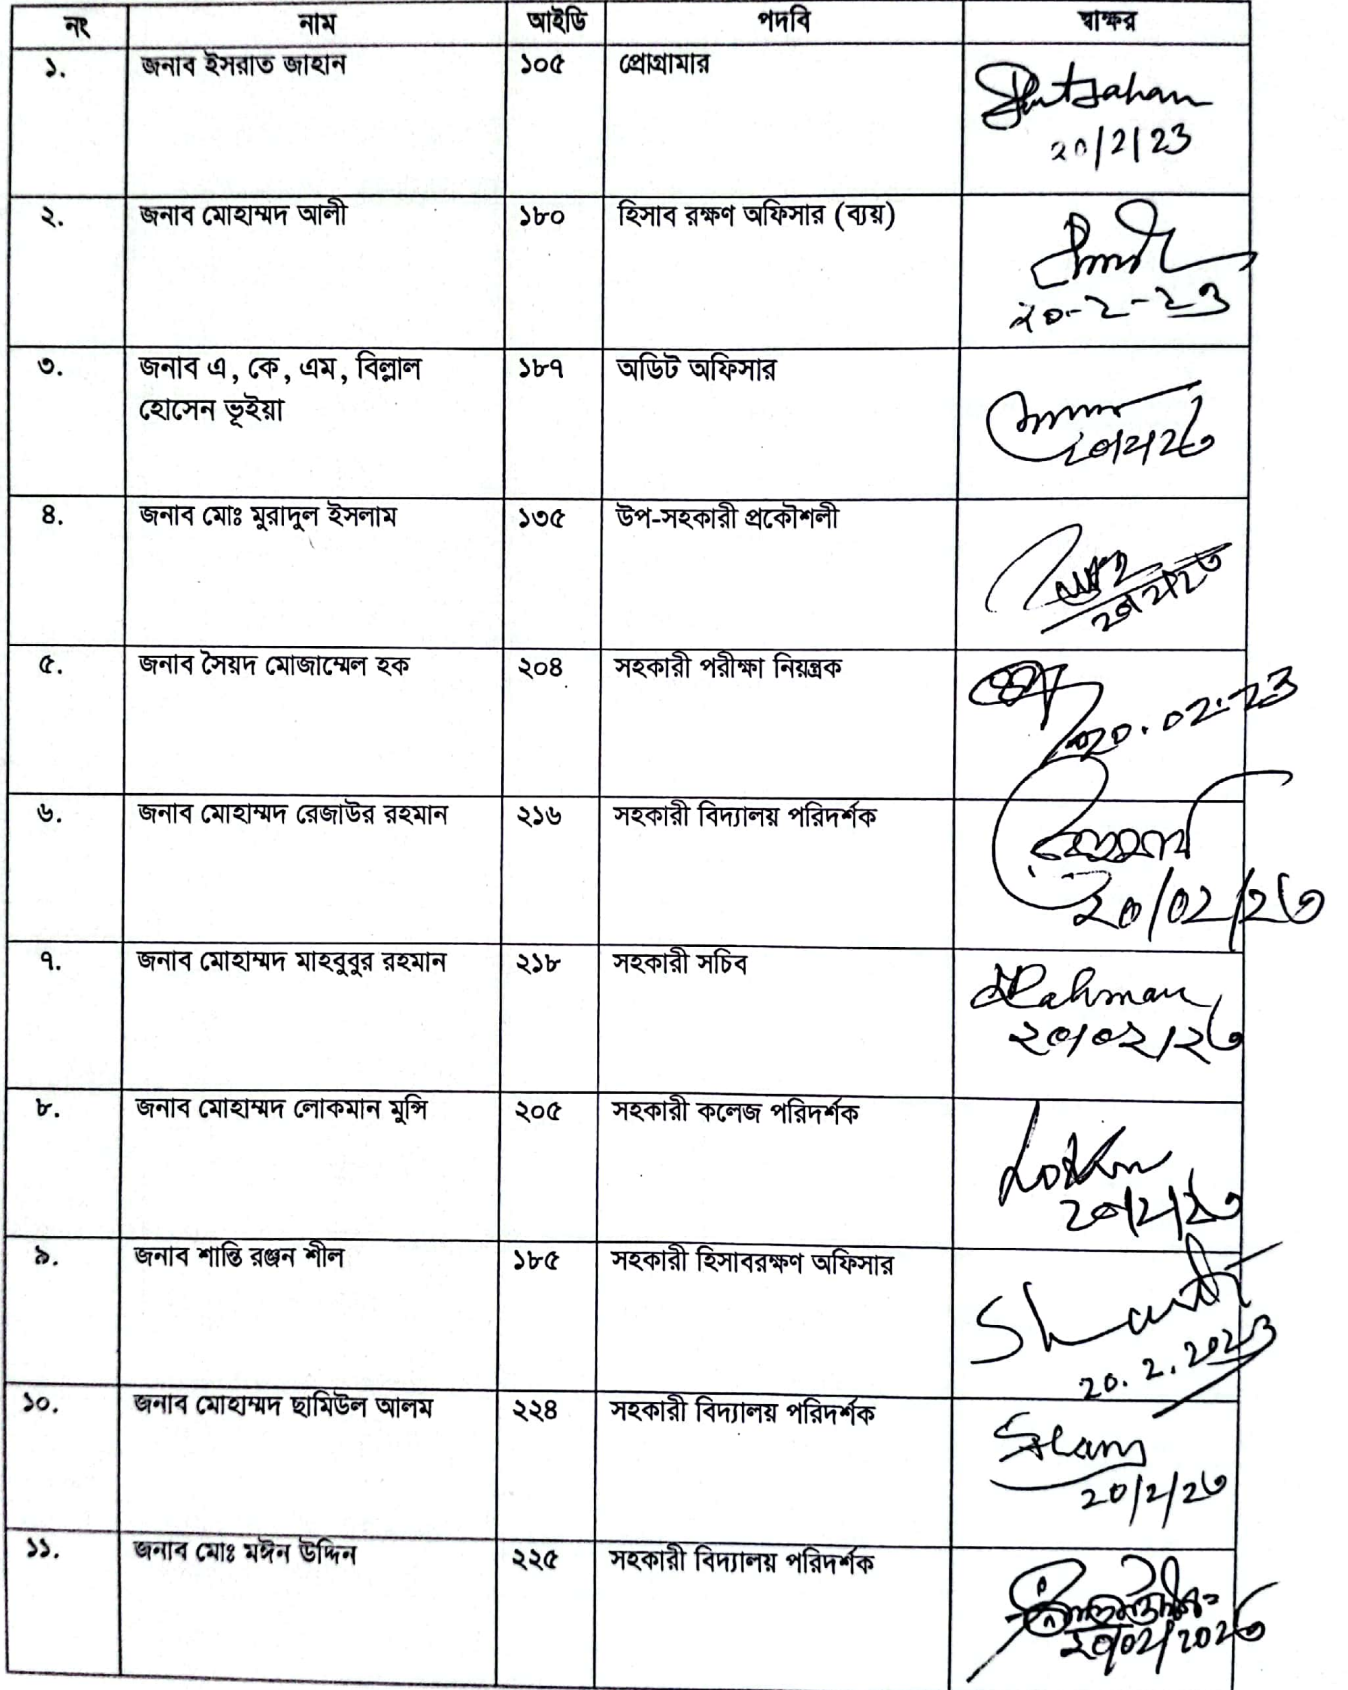 নং নাম আইডি পদবি স্বাক্ষর
১. জনাব ইসরাত জাহান ১০৫ প্রোগ্রামার
20/2/23
২. জনাব মোহাম্মদ আলী ১৮০ হিসাব রক্ষণ অফিসার (ব্যয়)
২০-২-২৩
৩. জনাব এ, কে, এম, বিল্লাল ১৮৭ অডিট অফিসার
হোসেন ভূইয়া
২০/২/২৩
৪. জনাব মোঃ মুরাদুল ইসলাম ১৩৫ উপ-সহকারী প্রকৌশলী
২০/২/২৩
৫. জনাব সৈয়দ মোজাম্মেল হক ২০৪ সহকারী পরীক্ষা নিয়ন্ত্রক
20.02.23
৬. জনাব মোহাম্মদ রেজাউর রহমান ২১৬ সহকারী বিদ্যালয় পরিদর্শক
২০/০২/২৩
৭. জনাব মোহাম্মদ মাহবুবুর রহমান ২১৮ সহকারী সচিব
Rahman
২০/০২/২৩
৮. জনাব মোহাম্মদ লোকমান মুন্সি ২০৫ সহকারী কলেজ পরিদর্শক
২০/২/২৩
৯. জনাব শান্তি রঞ্জন শীল ১৮৫ সহকারী হিসাবরক্ষণ অফিসার
20.2.2023
১০. জনাব মোহাম্মদ ছামিউল আলম ২২৪ সহকারী বিদ্যালয় পরিদর্শক
২০/২/২৩
১১. জনাব মোঃ মঈন উদ্দিন ২২৫ সহকারী বিদ্যালয় পরিদর্শক
২০/০২/২০২৩